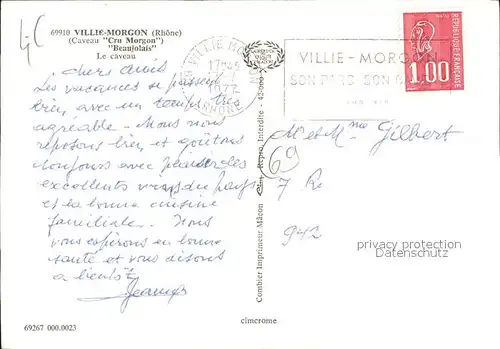 69910 VILLIE-MORGON (Rhône)
(Caveau "Cru Morgon")
"Beaujolais"
Le caveau
Chers amis
Les vacances se passent
bien, avec un temps très
agréable. Nous nous
reposons bien, et goûtons
toujours avec
excellents vins du pays
et la bonne cuisine
familiale. Nous
vous espérons en bonne
santé et vous disons
à bientôt
69267 000.0023
VILLIE MO
17H45
1977
RHONE
VILLIE-MORGON
SON PARC SON
1,00
RÉPUBLIQUE FRANÇAISE
M et Mme Gilbert
69
7 R
942
Combier Imprimeur Mâcon
Repro. Interdite
cimcrome
privacy protection
watermark